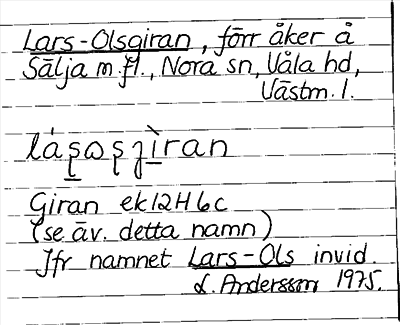 Lars-Olsgiran, förr åker å
Sälja m.fl., Nora sn, Våla hd,
Västm. l.
Giran ek 12H6c
(se äv. detta namn)
Jfr namnet Lars-Ols invid.
L. Andersson 1975.